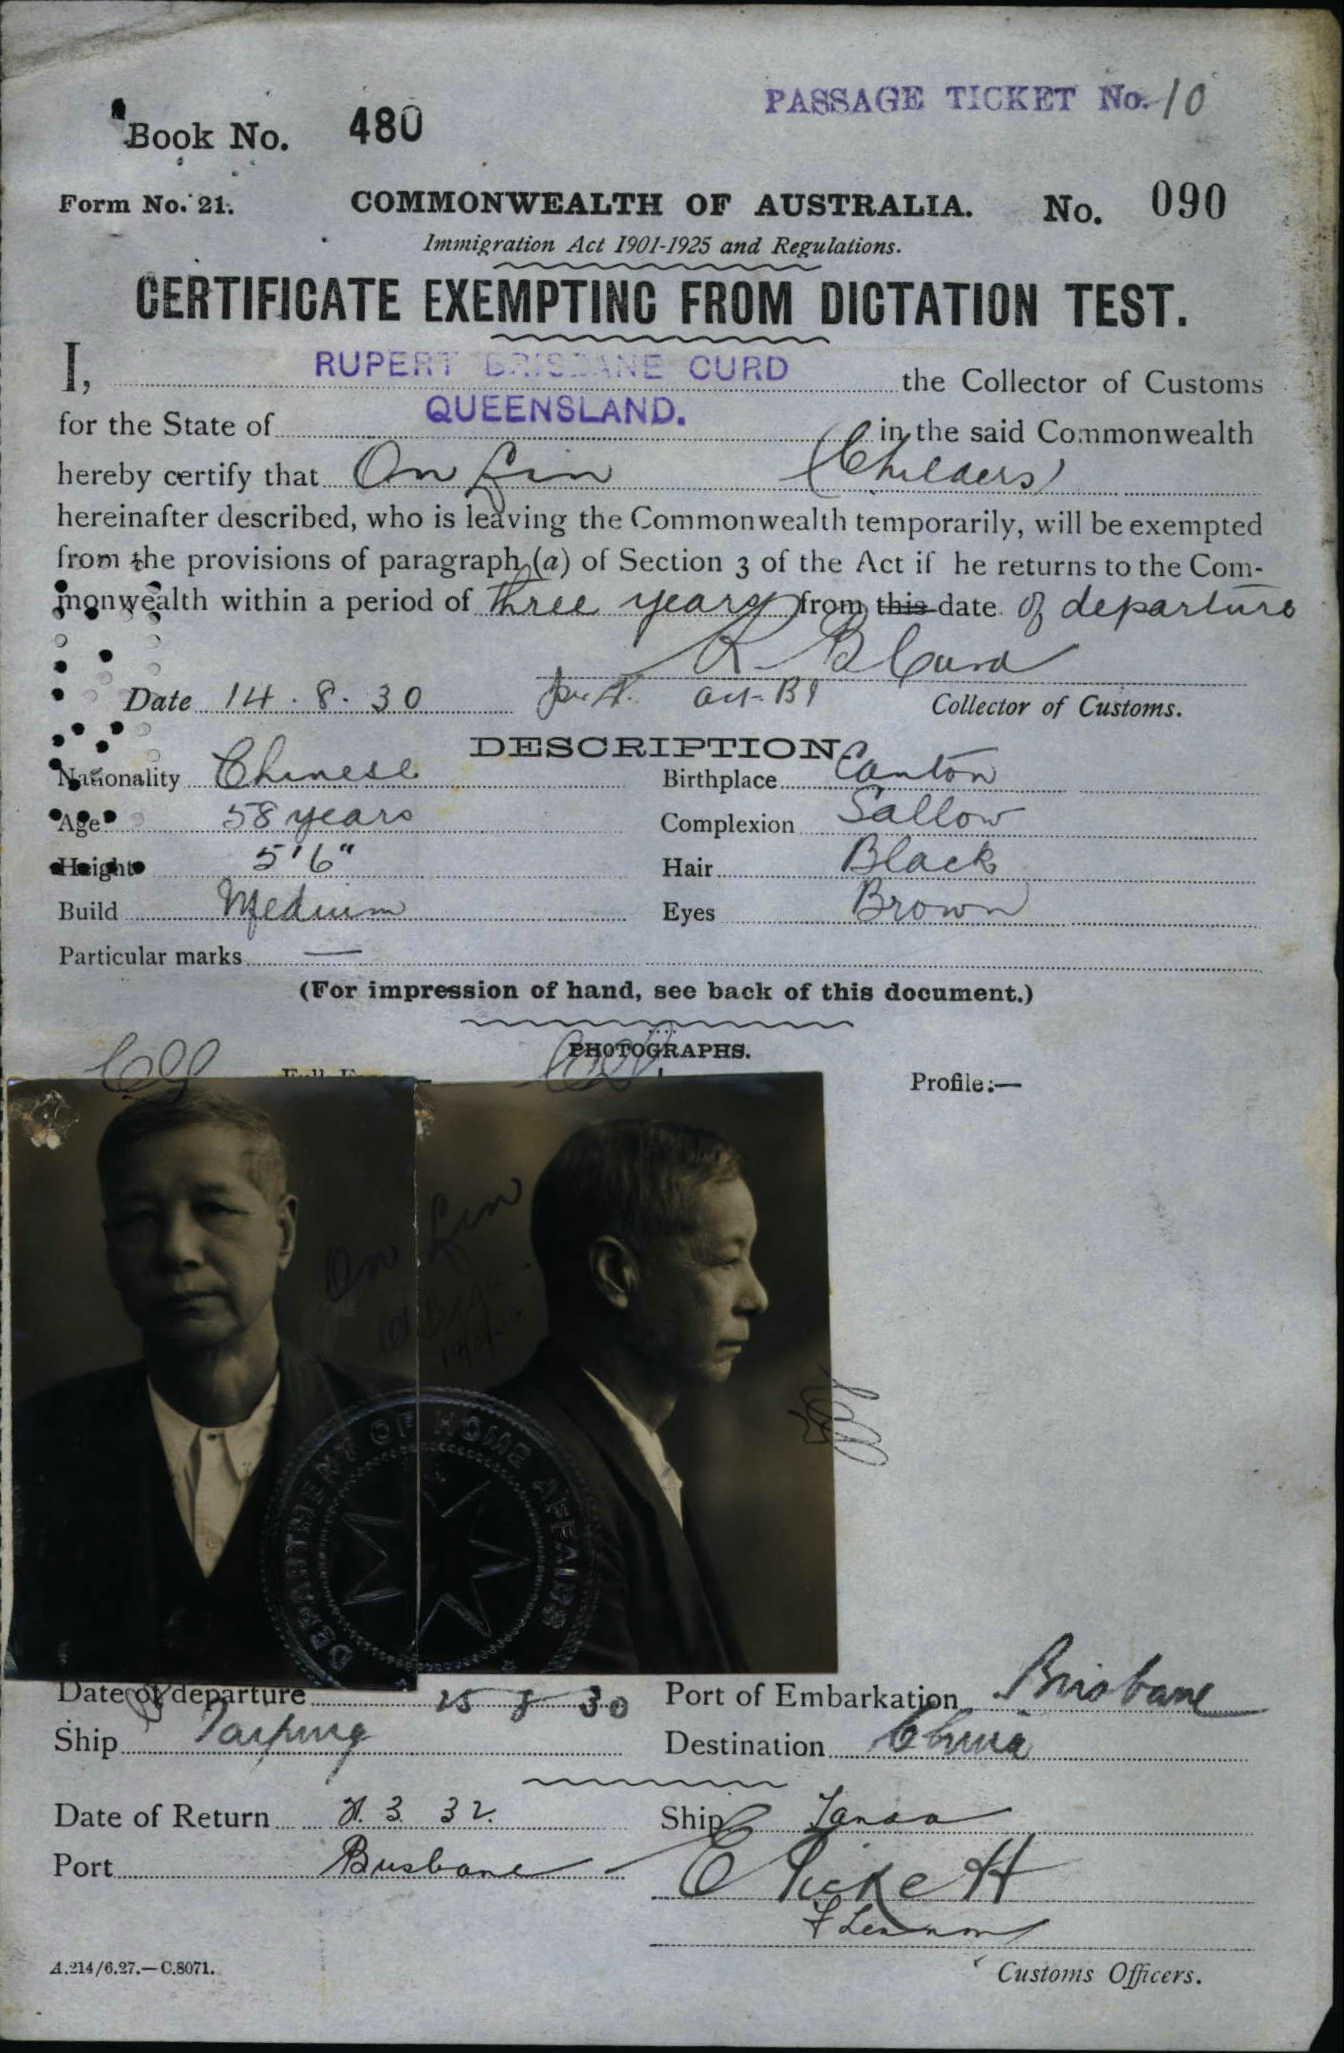 PASSAGE TICKET No. 10
Book No. 480
Form No. 21. COMMONWEALTH OF AUSTRALIA. No. 090
Immigration Act 1901-1925 and Regulations.
CERTIFICATE EXEMPTING FROM DICTATION TEST.
I, RUPERT BRISBANE CURD the Collector of Customs
for the State of QUEENSLAND. in the said Commonwealth
hereby certify that On Lin (Childers)
hereinafter described, who is leaving the Commonwealth temporarily, will be exempted
from the provisions of paragraph (a) of Section 3 of the Act if he returns to the Com-
monwealth within a period of three years from this date of departure
R B Curd
Date 14.8.30 Collector of Customs.
DESCRIPTION.
Nationality Chinese Birthplace Canton
Age 58 years Complexion Sallow
Height 5'6" Hair Black
Build Medium Eyes Brown
Particular marks —
(For impression of hand, see back of this document.)
PHOTOGRAPHS.
Profile:—
On Lin
DEPARTMENT OF HOME AFFAIRS
Date of departure 25 8 30 Port of Embarkation Brisbane
Ship Taiping Destination China
Date of Return 3 32. Ship Tanda
Port Brisbane
E Pickett
F Lennon
A.214/6.27.—C.8071. Customs Officers.